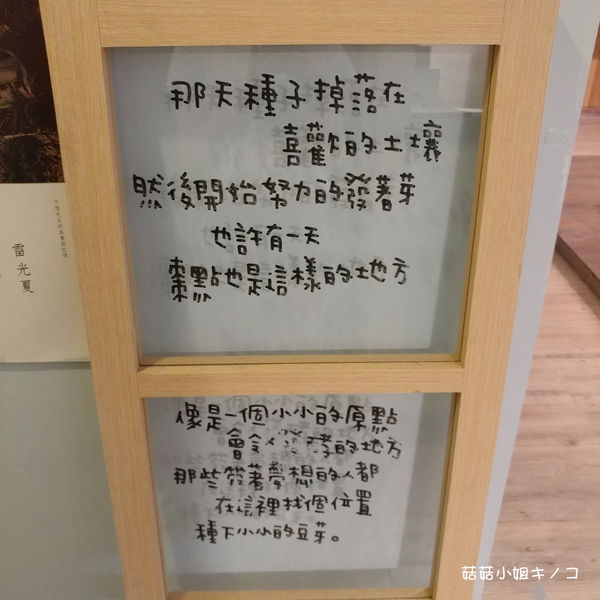 那天種子掉落在
喜歡的土壤
然後開始努力的發著芽
也許有一天
棗點也是這樣的地方
像是一個小小的原點
會令人發酵的地方
那些符著夢想的人都
在這裡找個位置
種下小小的豆芽。
雷光夏
菇菇小姐キノコ